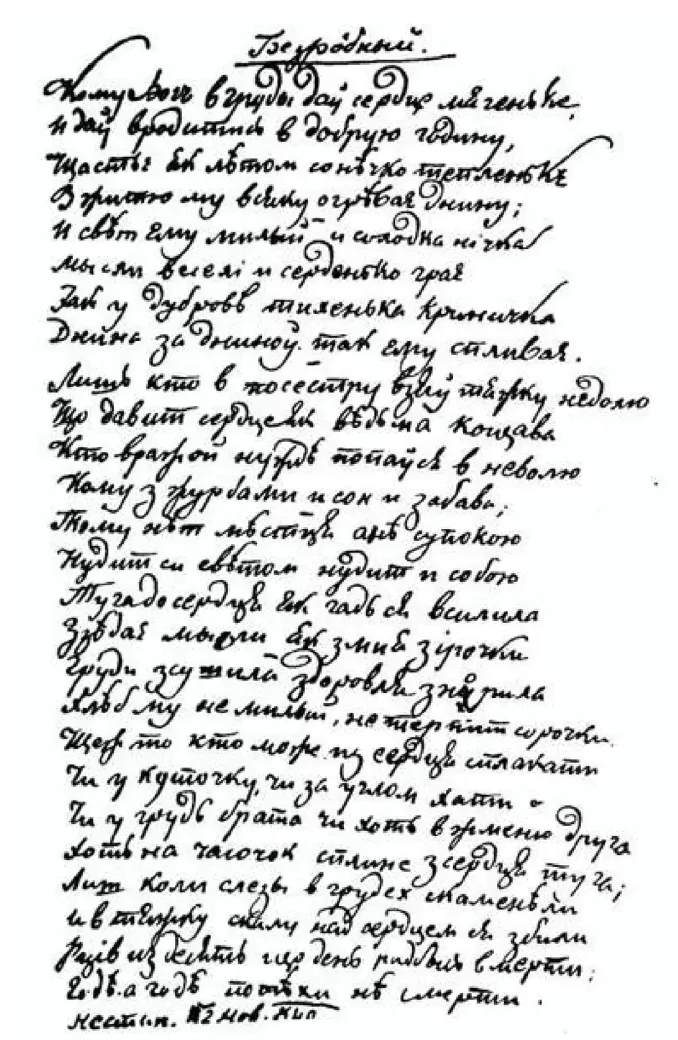 Безрôбный.
Кому Богъ в груды даў сердце мягеньке,
И даў вродитись в добрую годину,
Щастьє як лѣтом сонѣчко тепленькє
В житю му всяку огрѣває днину;
И свѣт ему милый и солодка нічка
Мысли веселі и серденько грає
Як у дубровѣ тихенька криничка
Днина за днинoў так ему сплыває.
Лишь кто в посестру взяў тяжку недолю
Що давит сердце як вѣдьма кощава
Кто вражой нуждѣ попаўся в неволю
Кому з журбами и сон и забава;
Тому нѣт мѣстця анѣ супокою
Нудит си свѣтом нудит и собою
Туга до сердця як гадь ся всилила
Зъѣдає мысли як змия зірочки
Груди зсушила здоровля знурила
Хлѣб му не милый, не терпит сорочки
Щеж то кто може из сердця сплакати
Чи у куточку, чи за углом хати
Чи у грудь брата чи хоть в жменю друга
Хоть на часочок сплине з сердця туга;
Лиш коли слезы в грудех скаменѣли
И в тяжку скалу над сердцем ся збили
в смерти;
Годѣ а годѣ потѣхи нѣ смерти.
12 нов.